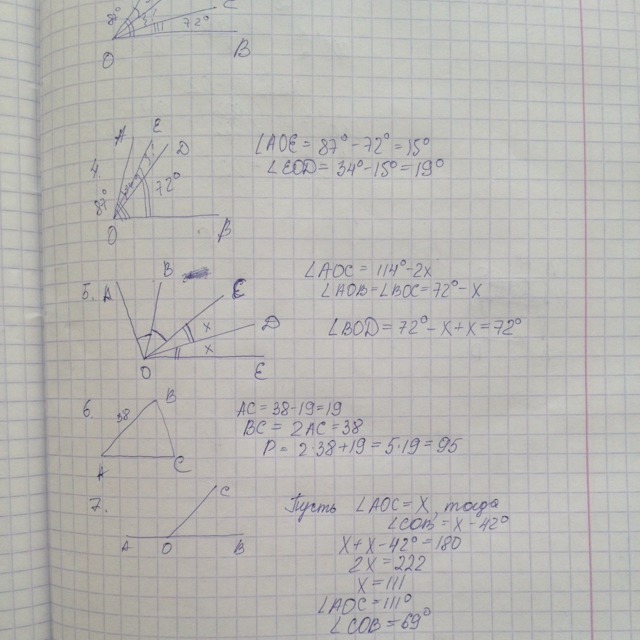 C
72°
O B
4 A E D
∠AOE = 87° - 72° = 15°
∠EOD = 34° - 15° = 19°
87° 72°
O B
5. A B C D E
x
x
O
∠AOC = 114° - 2x
∠AOB = ∠BOC = 72° - x
∠BOD = 72° - x + x = 72°
6. 38 B
A C
AC = 38 - 19 = 19
BC = 2AC = 38
P = 2·38 + 19 = 5·19 = 95
7. C
A O B
Пусть ∠AOC = x, тогда
∠COB = x - 42°
x + x - 42° = 180
2x = 222
x = 111
∠AOC = 111°
∠COB = 69°